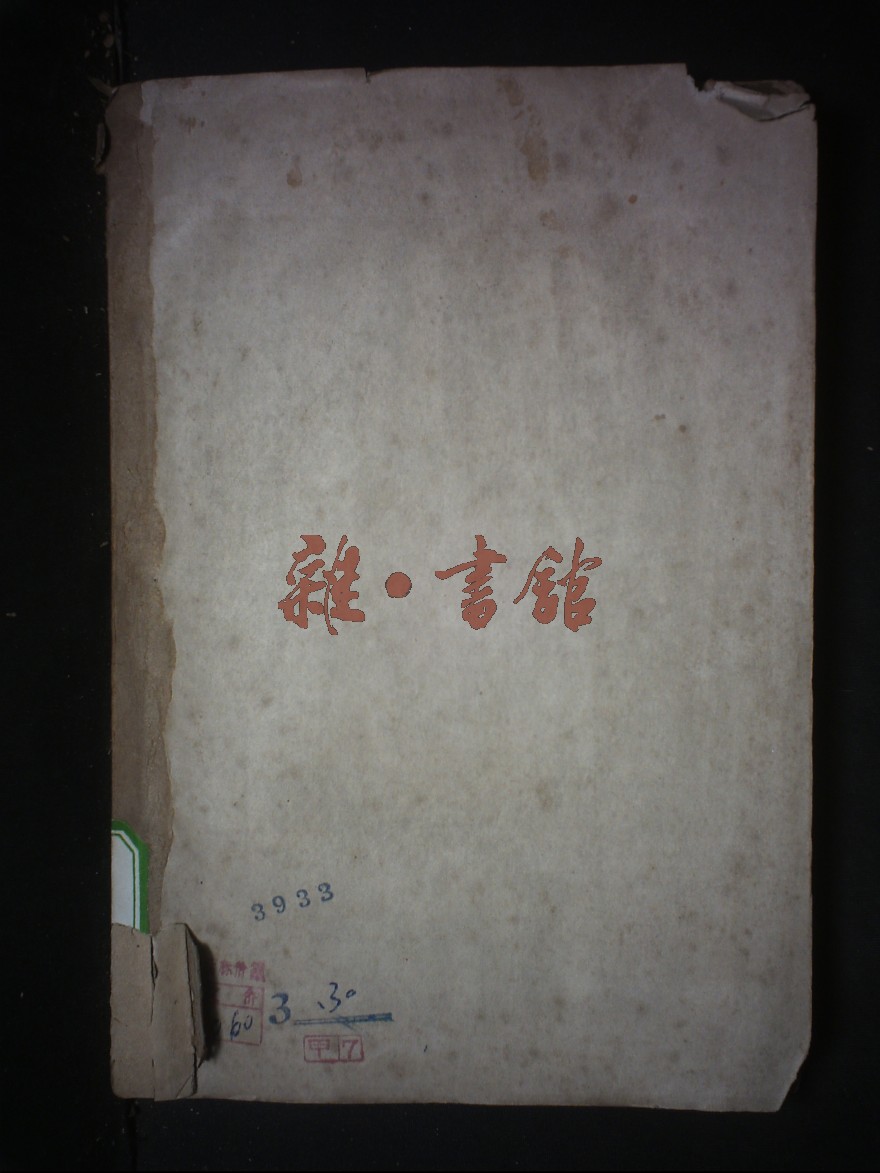 雜·書館
3933
3 .30
60
甲7